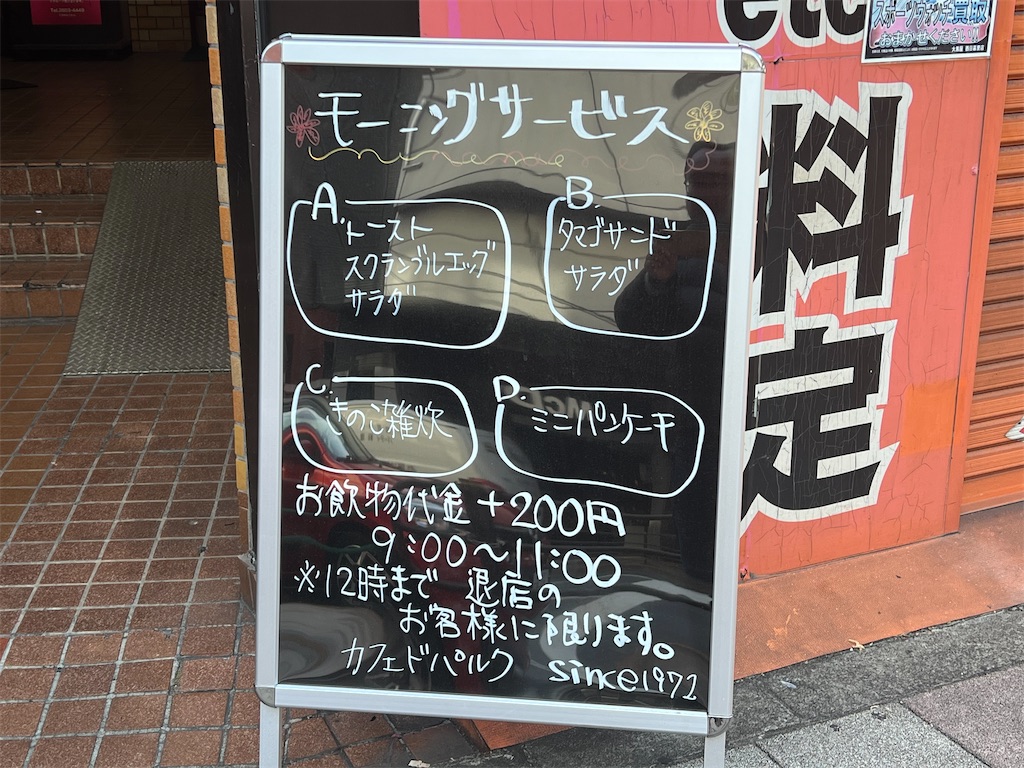 Tel.3603-4449
etc
スポーツウォッチ買取
おまかせください!!
モーニングサービス
A.
トースト
スクランブルエッグ
サラダ
B.
タマゴサンド
サラダ
C.
きのこ雑炊
D.
ミニパンケーキ
お飲物代金+200円
9:00〜11:00
※12時まで 退店の
お客様に限ります。
カフェドパルク since1972